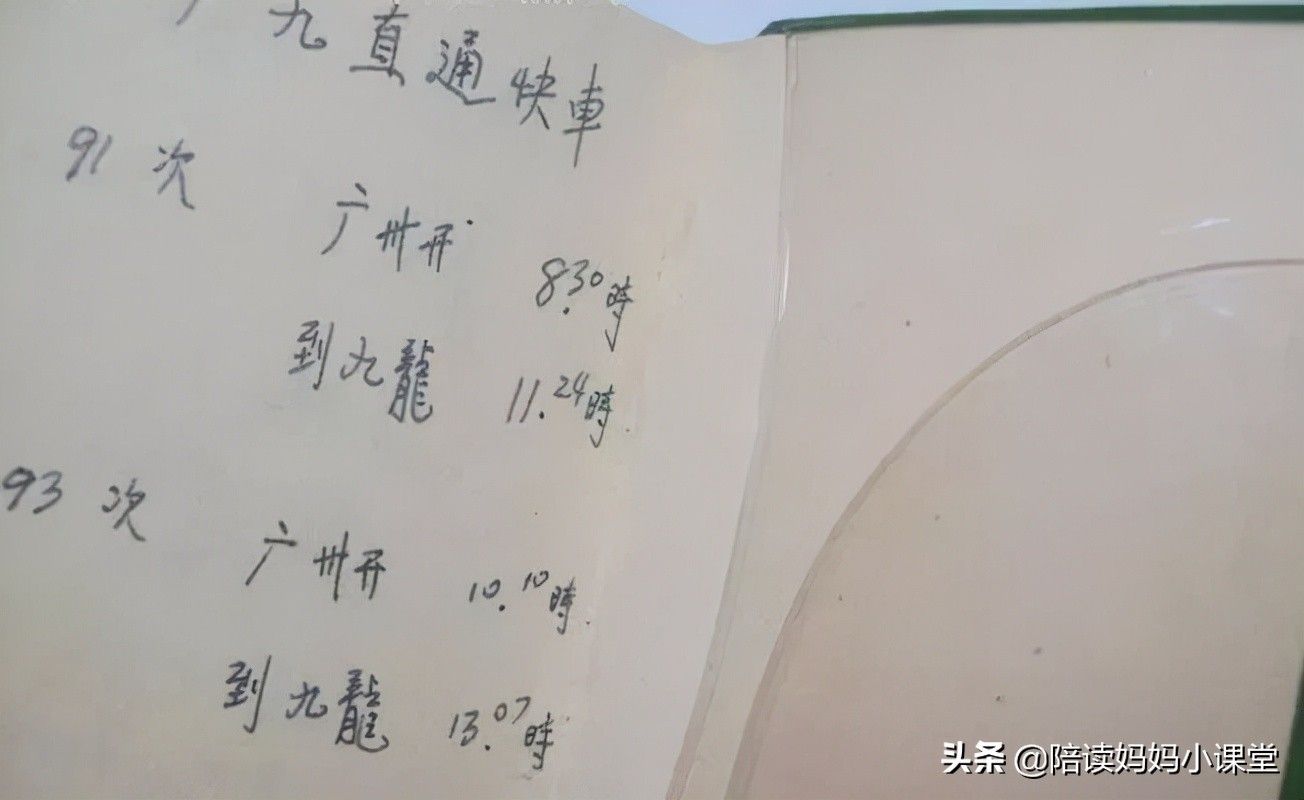 广九直通快車
91次
广州开 8.30時
到九龍 11.24時
93次
广州开 10.10時
到九龍 13.07時
头条 @陪读妈妈小课堂